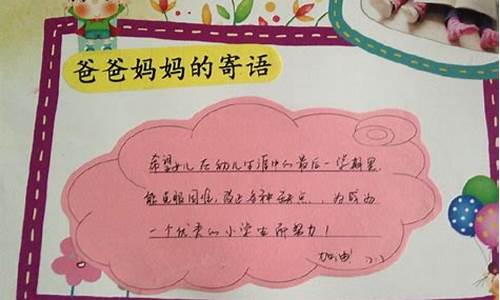 爸爸妈妈的寄语
希望女儿在幼儿生涯中的最后一学期里
能克服困难,改正各种缺点,为成为
一个优秀的小学生而努力!
加油!